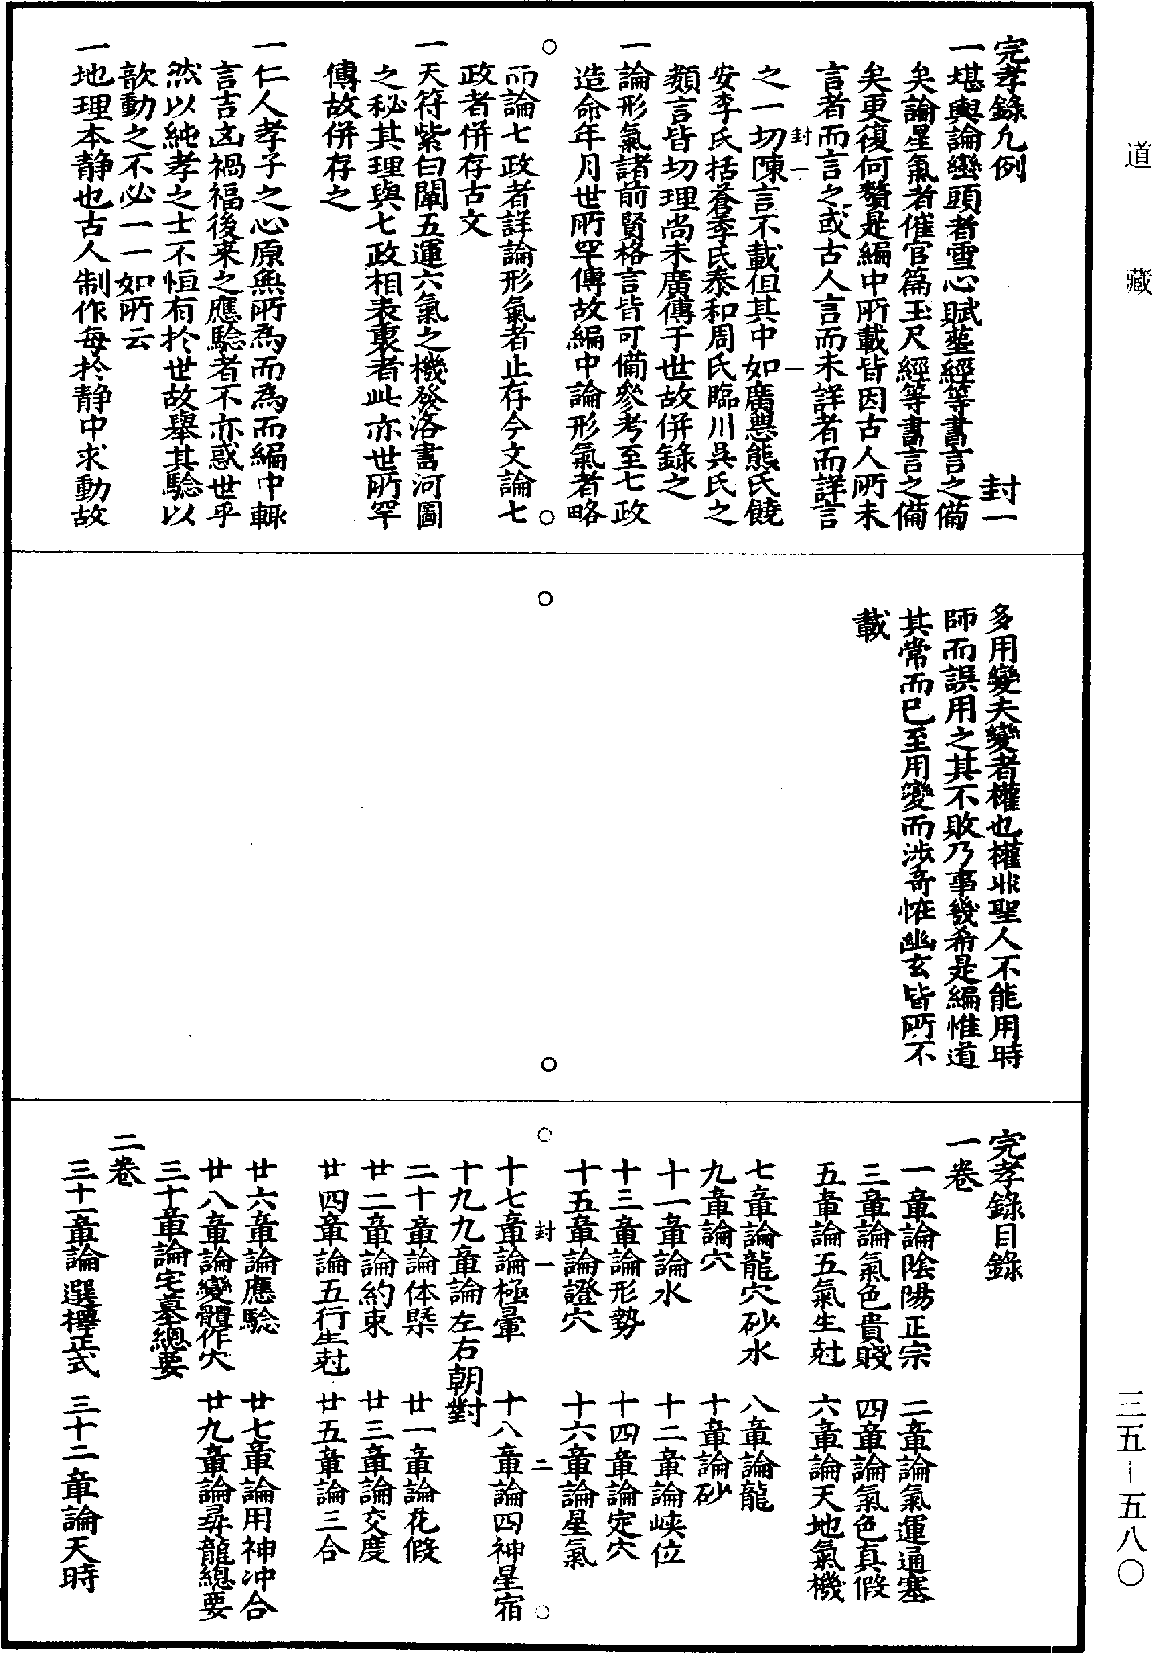 道藏
完孝錄凡例
封一
一堪輿論巒頭者雪心賦葬經等書言之備
矣論星氣者催官篇玉尺經等書言之備
矣更復何贅是編中所載皆因古人所未
言者而言之或古人言而未詳者而詳言
之一切陳言不載但其中如廣興熊氏饒
安李氏括蒼季氏泰和周氏臨川吳氏之
類言皆切理尚未廣傳于世故併錄之
一論形氣諸前賢格言皆可備參考至七政
造命年月世所罕傳故編中論形氣者略
而論七政者詳論形氣者止存今文論七
政者併存古文
一天符紫白闡五運六氣之機發洛書河圖
之秘其理與七政相表裏者此亦世所罕
傳故併存之
一仁人孝子之心原無所為而為而編中輒
言吉凶禍福後來之應驗者不亦惑世乎
然以純孝之士不恒有於世故舉其驗以
歆動之不必一一如所云
一地理本靜也古人制作每於靜中求動故
封一
一
多用變夫變者權也權非聖人不能用時
師而誤用之其不敗乃事幾希是編惟道
其常而已至用變而涉奇怪幽玄皆所不
載
完孝錄目錄
一卷
一章論陰陽正宗 二章論氣運通塞
三章論氣色貴賤 四章論氣色真假
五章論五氣生尅 六章論天地氣機
七章論龍穴砂水 八章論龍
九章論穴 十章論砂
十一章論水 十二章論峽位
十三章論形勢 十四章論定穴
十五章論證穴 十六章論星氣
封一
二
十七章論極暈 十八章論四神星宿
十九九章論左右朝對
二十章論体槩 廿一章論花假
廿二章論約束 廿三章論交度
廿四章論五行生尅 廿五章論三合
廿六章論應驗 廿七章論用神冲合
廿八章論變體作穴 廿九章論尋龍總要
三十章論宅墓總要
二卷
三十一章論選擇正式 三十二章論天時
三五-五八〇